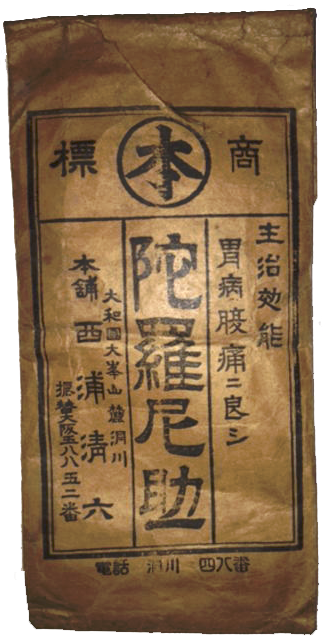 商標
本
主治効能
胃病腹痛ニ良シ
陀羅尼助
大和國大峯山麓洞川
本舗 西浦清六
振替大阪五八八五二番
電話 洞川 四八番